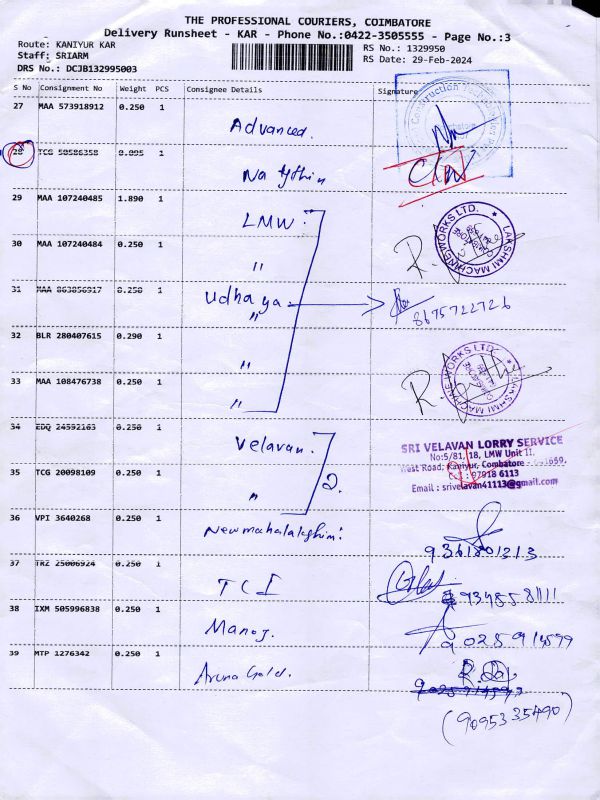 THE PROFESSIONAL COURIERS, COIMBATORE
Delivery Runsheet - KAR - Phone No.:0422-3505555 - Page No.:3
Route: KANIYUR KAR
RS No.: 1329950
Staff: SRIARM
RS Date: 29-Feb-2024
DRS No.: DCJB132995003
S No Consignment No Weight PCS Consignee Details Signature
27 MAA 573918912 0.250 1 Advanced.
28 TCG 50586358 0.095 1
29 MAA 107240485 1.890 1 LMW
LAKSHMI MACHINE WORKS LTD.
30 MAA 107240484 0.250 1 "
31 MAA 863856917 0.250 1 Udhaya
"
8675722726
32 BLR 280407615 0.290 1 "
LAKSHMI MACHINE WORKS LTD.
33 MAA 108476738 0.250 1 "
34 EDQ 24592163 0.250 1 Velavan.
SRI VELAVAN LORRY SERVICE
No:5/81, 18, LMW Unit II,
West Road, Kaniyur, Coimbatore - 641659.
Cell : 97918 6113
Email : srivelavan41113@gmail.com
35 TCG 20098109 0.250 1 " 2.
36 VPI 3640268 0.250 1 Newmahalakshmi
9361801313
37 TRZ 25006924 0.250 1 TCI
38 IXM 505996838 0.250 1 Manoj.
39 MTP 1276342 0.250 1 Aruna Gold.
(9095335490)